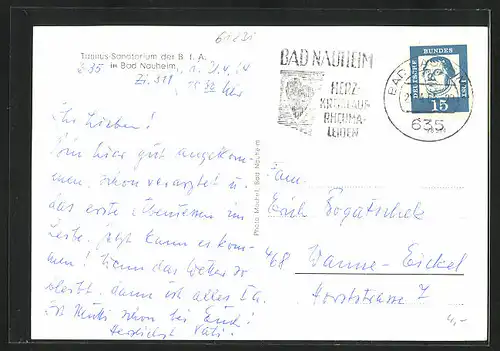 61231
Taunus-Sanatorium der B. f. A.
in Bad Nauheim
635
Zi. 311
Ihr Lieben!
Bin hier gut angekom-
men, schon verarztet u.
das erste Abendessen im
Leibe. Jetzt kann es kom-
men! Wenn das Wetter so
bleibt, dann ist alles I a.
Ist Mutti schon bei Euch?
Herzlichst Vati!
Photo Mäurer, Bad Nauheim
BAD NAUHEIM
HERZ-
KREISLAUF
RHEUMA-
LEIDEN
BAD
635
DEUTSCHE BUNDESPOST
15
Fam.
Erich Bogatschek
468 Wanne-Eickel
Horststrasse 7
4,-